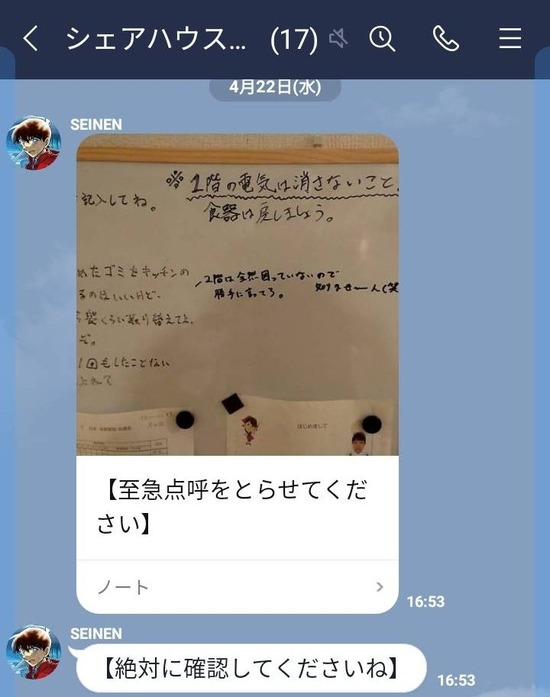 シェアハウス... (17)
4月22日(水)
SEINEN
記入してね。
※1階の電気は消さないこと
食器は戻しましょう。
たゴミをキッチンの
2階は全然困っていないので
勝手に言ってろ。
知りませーん(笑
取り替えてよ
1回もしたことない
はじめまして
【至急点呼をとらせてくだ
さい】
ノート
16:53
SEINEN
【絶対に確認してくださいね】
16:53